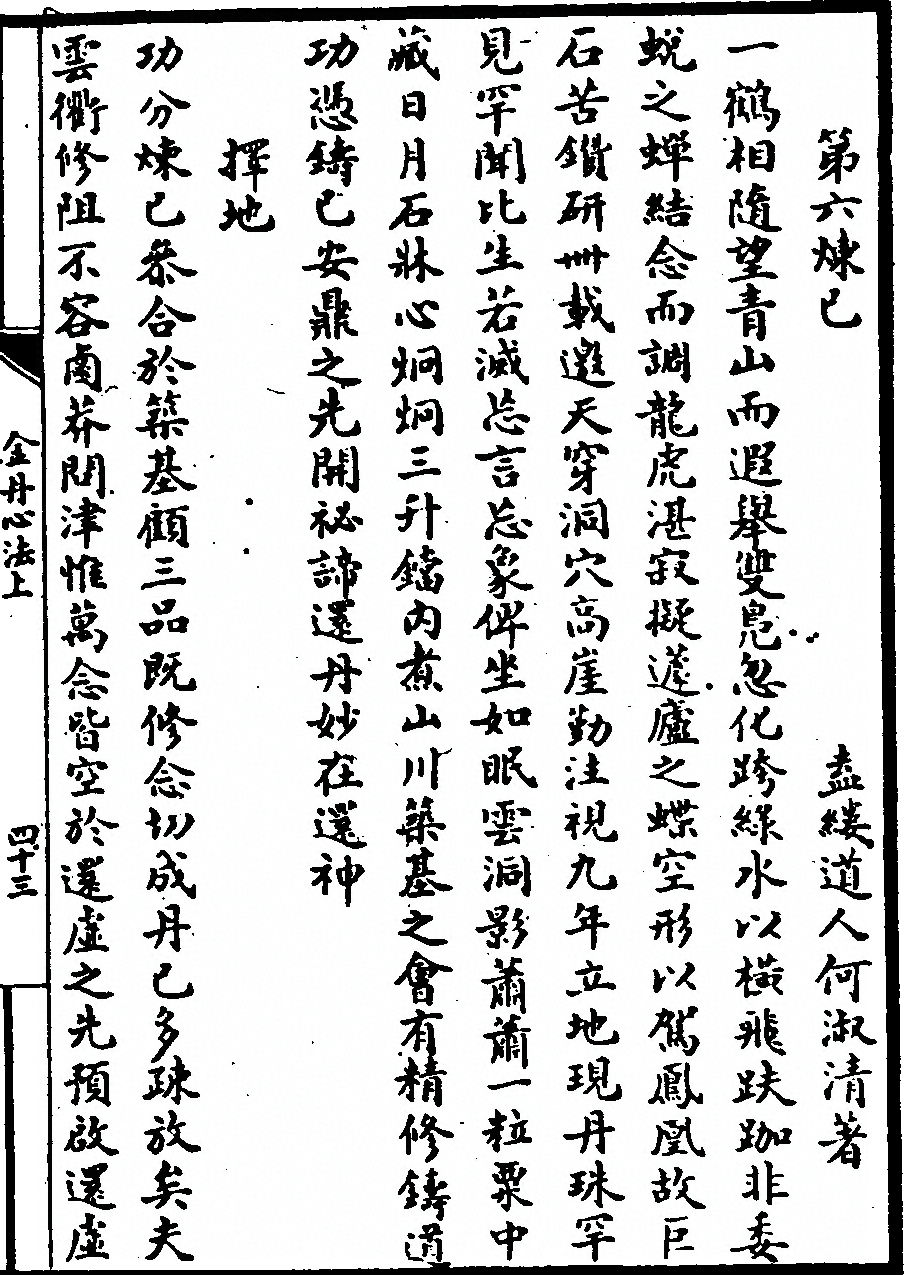 第六煉已 盍縷道人何淑清著
一鶴相隨望青山而遐舉雙鳧忽化跨綠水以橫飛趺跏非委
蛻之蟬結念而調龍虎湛寂擬蘧廬之蝶空形以駕鳳凰故巨
石苦鑽研卌載邀天穿洞穴高崖勤注視九年立地現丹珠罕
見罕聞比生若滅忘言忘象俾坐如眠雲洞影蕭蕭一粒粟中
藏日月石牀心炯炯三升鐺內煮山川築基之會有精修鑄道
功憑鑄已安鼎之先開祕諦還丹妙在還神
擇地
功分煉已叅合於築基顧三品既修念切成丹已多疎放矣夫
雲衢修阻不容鹵莽問津惟萬念皆空於還虛之先預啟還虛
金丹心法上
四十三